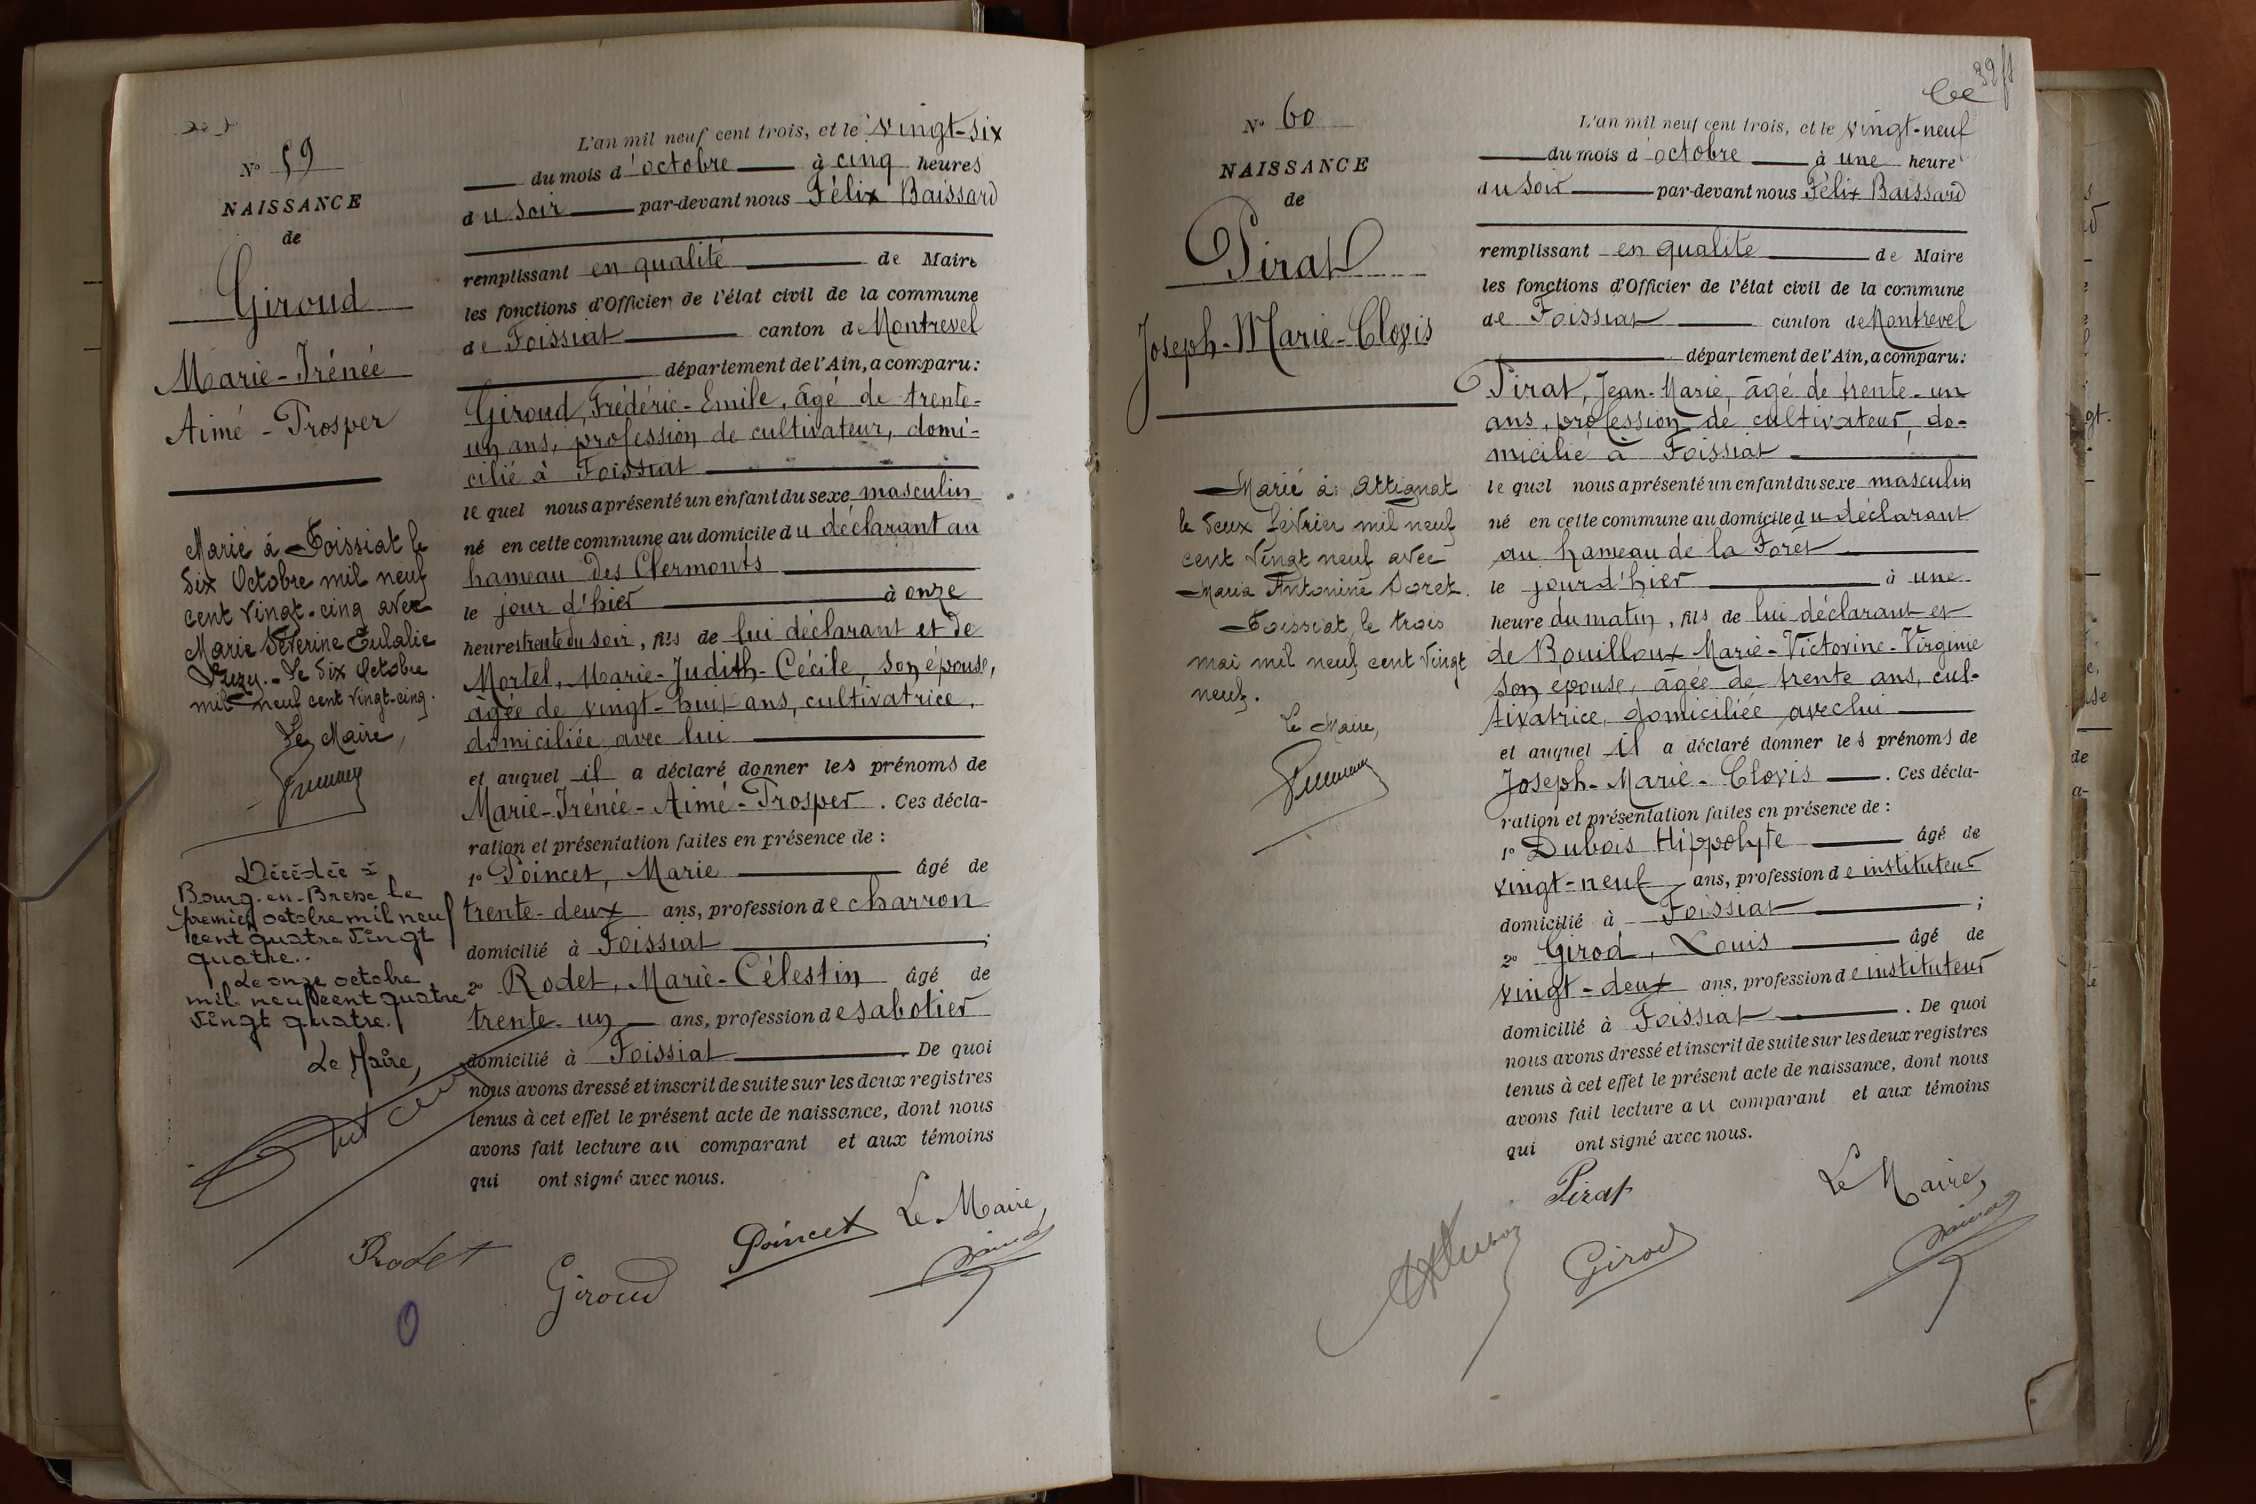 N° 59
NAISSANCE
de
Giroud
Marie-Irénée
Aimé-Prosper
Marié à Foissiat le
six Octobre mil neuf
cent vingt-cinq avec
Marie Séverine Eulalie
Le six Octobre
mil neuf cent vingt-cinq.
Le Maire,
Décédée à
Bourg-en-Bresse le
premier octobre mil neuf
cent quatre vingt
quatre..
Le onze octobre
mil neuf cent quatre
vingt quatre.
Le Maire,
L'an mil neuf cent trois, et le vingt-six
du mois d'octobre à cinq heures
du soir par-devant nous Félix Baissard
remplissant en qualité de Maire
les fonctions d'Officier de l'état civil de la commune
de Foissiat canton de Montrevel
département de l'Ain, a comparu:
Giroud, Frédéric-Emile, âgé de trente-
un ans, profession de cultivateur, domi-
cilié à Foissiat
lequel nous a présenté un enfant du sexe masculin
né en cette commune au domicile du déclarant au
hameau des Clermonts
le jour d'hier à onze
heures trente du soir, fils de lui déclarant et de
Mortel, Marie-Judith-Cécile, son épouse,
âgée de vingt-huit ans, cultivatrice,
domiciliée avec lui
et auquel il a déclaré donner les prénoms de
Marie-Irénée-Aimé-Prosper. Ces décla-
ration et présentation faites en présence de:
1° Poincet, Marie âgé de
trente-deux ans, profession de charron
domicilié à Foissiat;
2° Rodet, Marie-Célestin âgé de
trente-un ans, profession de sabotier
domicilié à Foissiat. De quoi
nous avons dressé et inscrit de suite sur les deux registres
tenus à cet effet le présent acte de naissance, dont nous
avons fait lecture au comparant et aux témoins
qui ont signé avec nous.
Rodet Giroud Poincet Le Maire,
39
N° 60
NAISSANCE
de
Pirat
Joseph-Marie-Clovis
Marié à Attignat
le deux février mil neuf
cent vingt neuf avec
Maria Antonine Doret.
Foissiat, le trois
mai mil neuf cent vingt
neuf.
Le Maire,
L'an mil neuf cent trois, et le vingt-neuf
du mois d'octobre à une heure
du soir par-devant nous Félix Baissard
remplissant en qualité de Maire
les fonctions d'Officier de l'état civil de la commune
de Foissiat canton de Montrevel
département de l'Ain, a comparu:
Pirat, Jean-Marie, âgé de trente-un
ans, profession de cultivateur, do-
micilié à Foissiat
lequel nous a présenté un enfant du sexe masculin
né en cette commune au domicile du déclarant
au hameau de la Foret
le jour d'hier à une
heure du matin, fils de lui déclarant et
de Bouilloux Marie-Victorine-Virginie
son épouse, âgée de trente ans, cul-
tivatrice, domiciliée avec lui
et auquel il a déclaré donner les prénoms de
Joseph-Marie-Clovis. Ces décla-
ration et présentation faites en présence de:
1° Dubois Hippolyte âgé de
vingt-neuf ans, profession de instituteur
domicilié à Foissiat;
2° Girod, Louis âgé de
vingt-deux ans, profession de instituteur
domicilié à Foissiat. De quoi
nous avons dressé et inscrit de suite sur les deux registres
tenus à cet effet le présent acte de naissance, dont nous
avons fait lecture au comparant et aux témoins
qui ont signé avec nous.
Pirat Le Maire,
Girod